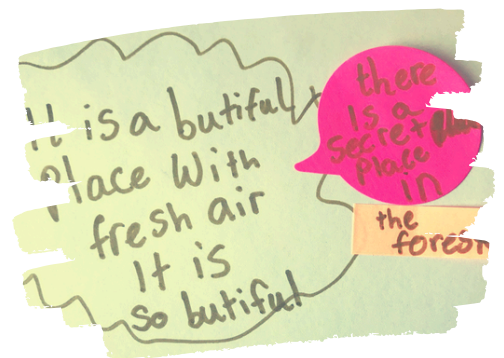 It is a butiful
Place With
fresh air
It is
so butiful
there
Is a
Secret
Place
in
the
forest